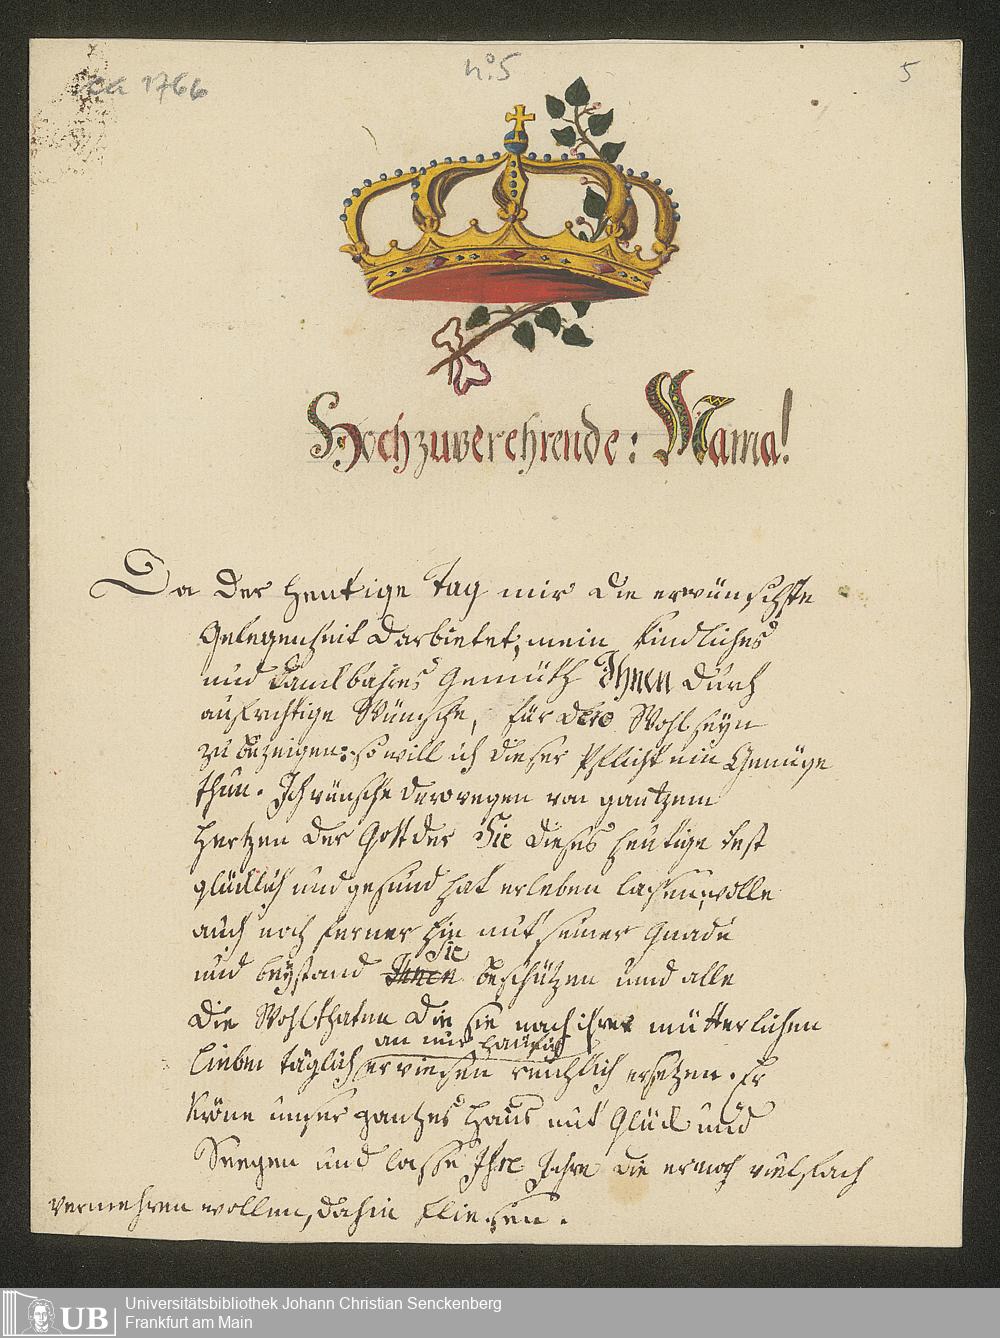 ca 1766
nº. 5
5
Hochzuverehrende: Mama!
Da der heutige Tag mir die erwünschte
Gelegenheit darbietet, mein kindliches
und danckbahres Gemüth Ihnen durch
aufrichtige Wünsche, für dero Wohlseyn
zu bezeigen: so will ich dieser Pflicht ein Genüge
thun. Ich wünsche derowegen von gantzem
Hertzen der Gott der Sie dieses heutige Fest
glücklich und gesund hat erleben lassen, wolle
auch noch ferner hin mit seiner Gnade
und beystand Ihnen Sie beschützen und alle
die Wohlthaten die sie nach ihrer mütterlichen
Lieben täglich an mir häufig erwiesen reichlich ersetzen. Er
Kröne unser gantzes Hauß mit Glück und
Seegen und lasse Ihre Jahre die er noch vielfach
vermehren wollen, dahin fliesen.
UB
Universitätsbibliothek Johann Christian Senckenberg
Frankfurt am Main